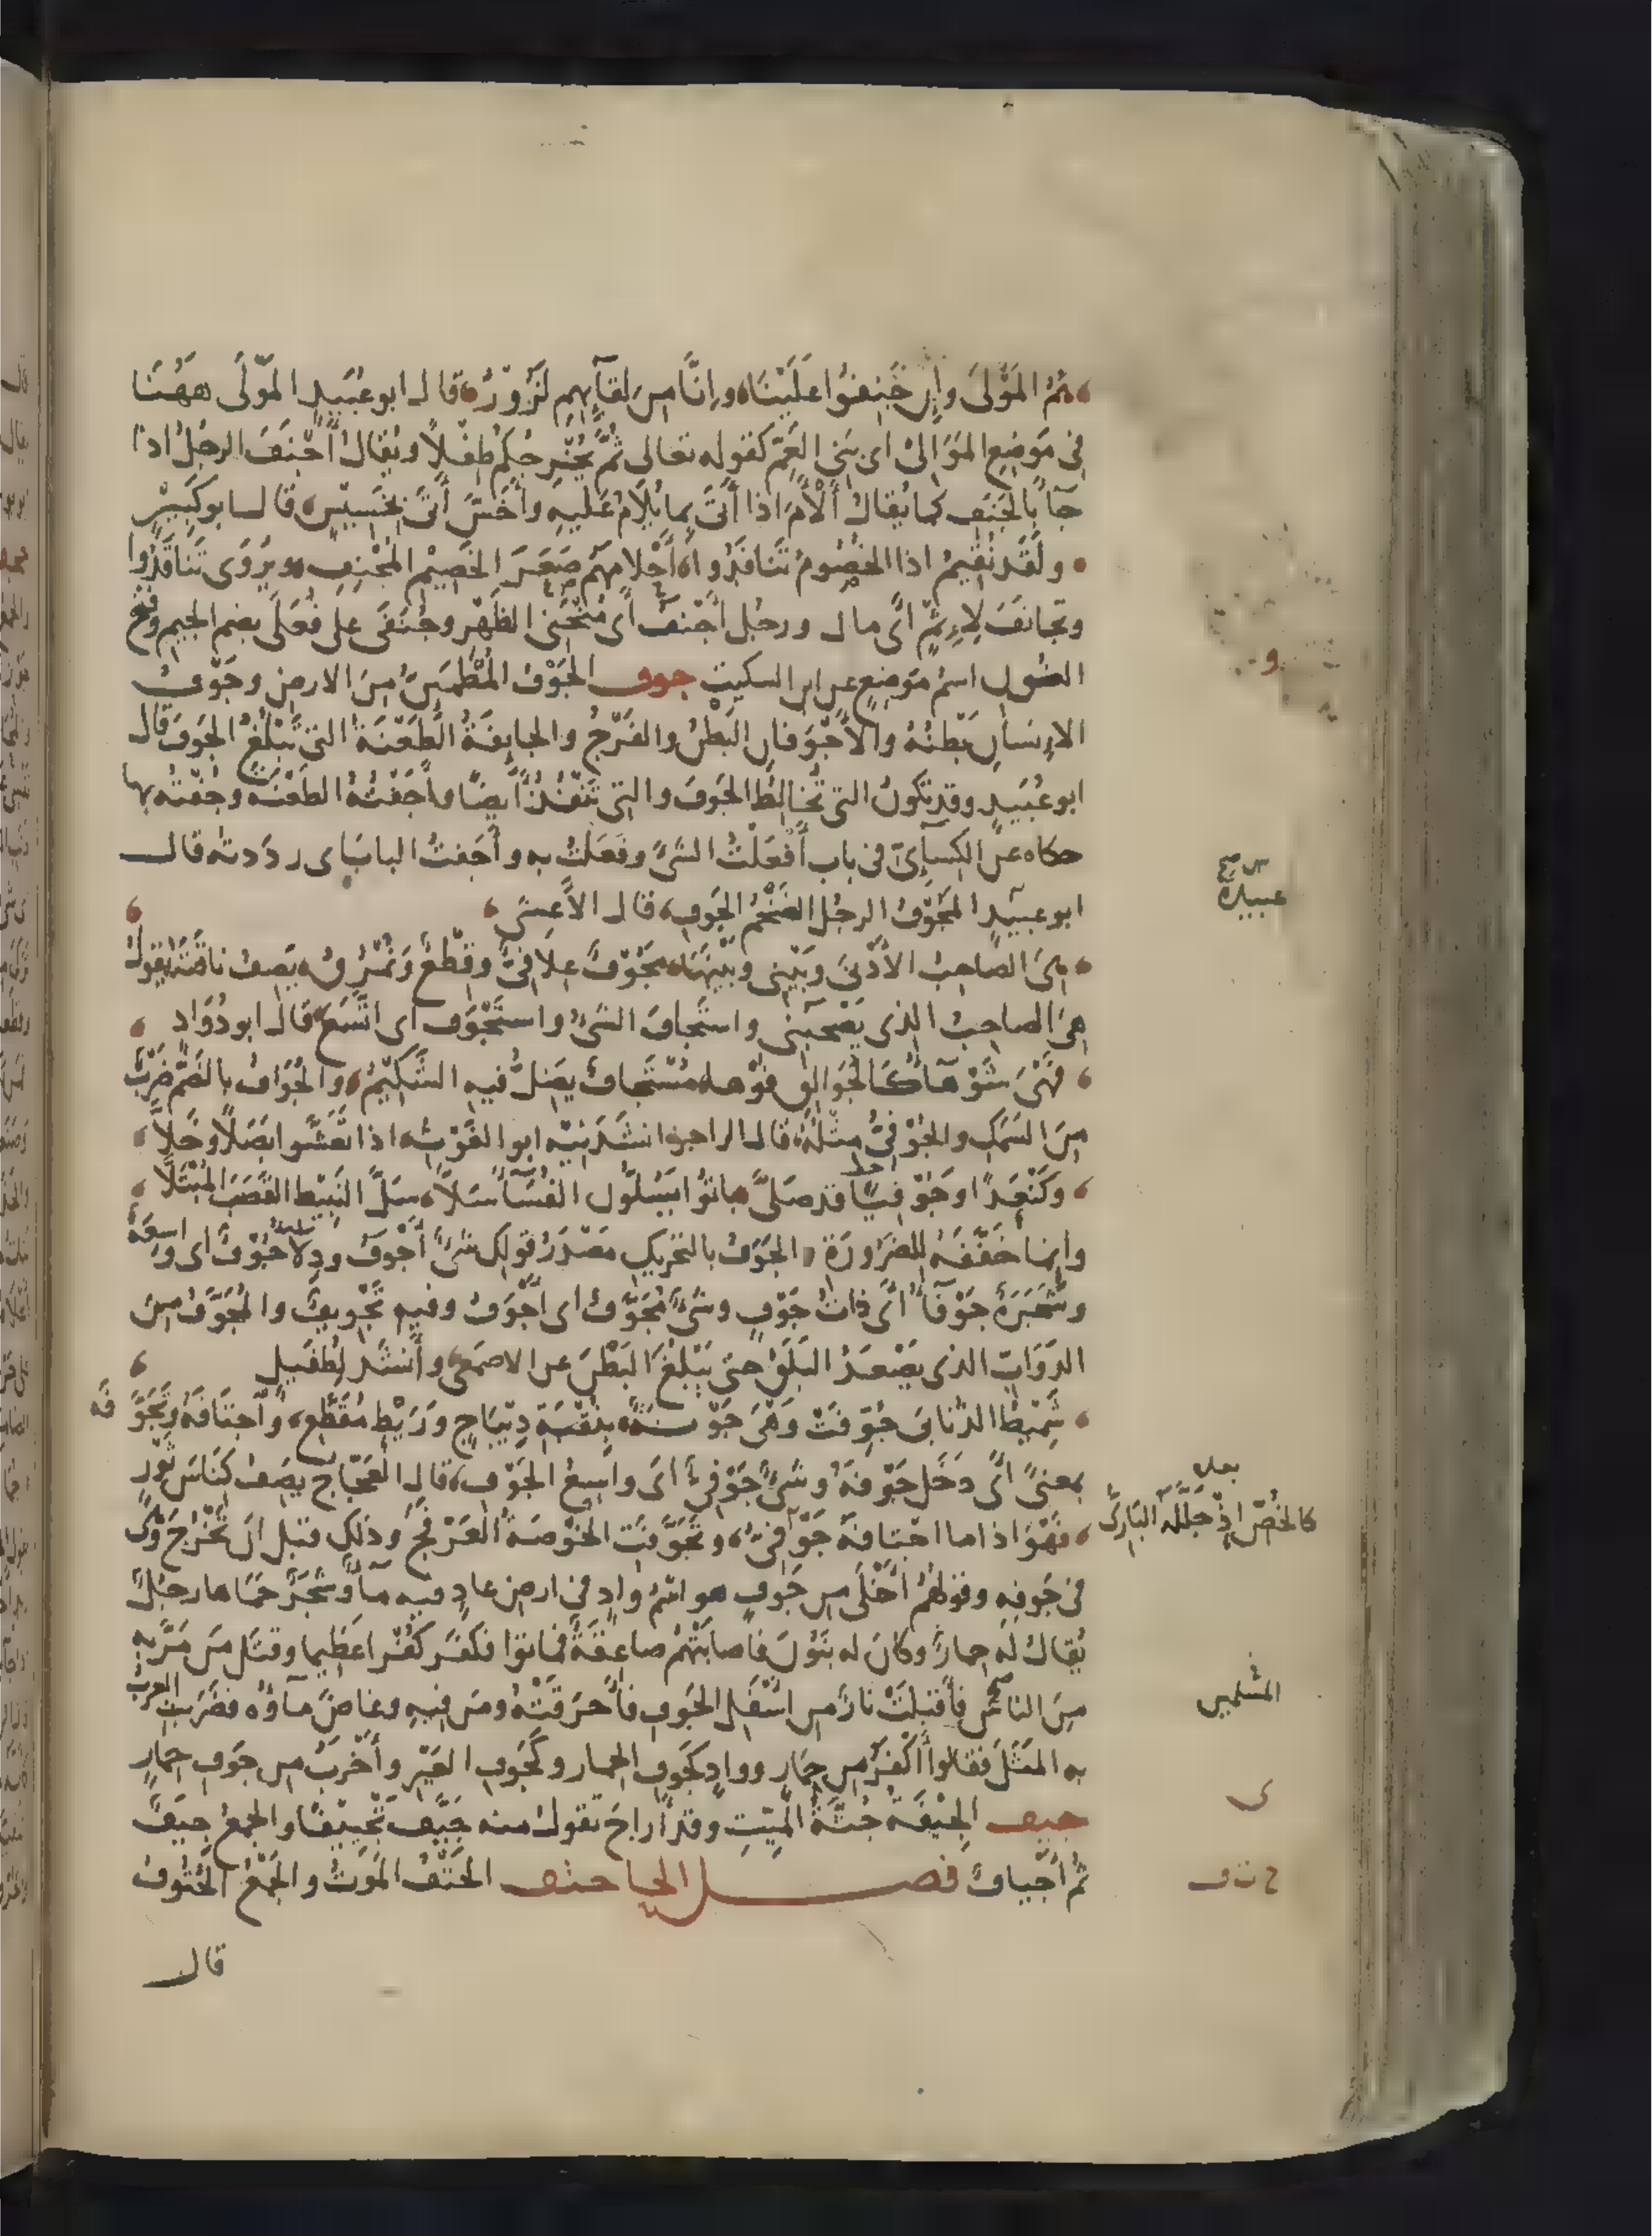 هُمُ المَوْلَى وإن جَنِفُوا عَلَيْنَا، وإنّا مِن لِقَائِهِم لَزُورُ، قال ابو عُبَيد المَوْلَى هَهُنَا
فى مَوضِعِ المَوَالِىْ اى بَنِى العَمِّ كقوله تعالى ثُمَّ يُخْرِجُكُمْ طِفْلاً ويُقالُ أَجْنَفَ الرجُلُ اذا
جآء بالجَنَف كما يُقالُ أَلْأَمَ اذا أَتَى بِما يُلامُ عَلَيهِ وأَخَسَّ أَتَى بِخَسِيْسٍ، قال ابو كَبِيْر
ولَقَد نُقِيمُ اذا الخُصُومُ تَنَافَدُوا، أَحْلامَهُم صَعَرَ الخَصِيْمِ المُجْنِفِ، ويُرْوَى تَنَاقَدُوا
وتجانَفَ لِإِثْمٍ أَى مال ورجُل أَجْنَفُ أَى مُنْحَنِى الظَّهْر وجُنَفَى على فُعَلَى بضم الجيم وفتح
النُون اسمُ مَوضِعٍ عن ابن السكيت جوف الجَوْفُ المُطْمَئِنُّ مِنَ الارض وجَوْفُ
الانسان بَطْنُهُ والأَجْوَفانِ البَطْنُ والفَرْجُ والجايِفَةُ الطَّعْنَةُ التى تَبْلُغُ الجَوفَ قال
ابو عُبَيدٍ وقد تكونُ التى تُخالِطُ الجَوفَ والتى تَنْفُذُ أَيضًا وأَجَفْتُهُ الطعْنَه وجُفْتُه بها
حكاه عن الكِسآئِىّ فى باب أَفْعَلْتُ الشىءَ وفَعَلْتُ به وأَجَفتُ البابَ اى رددته قال
ابو عبيد المَجَوَّفُ الرجُل الضَخْمُ الجَوفِ، قال الأَعشى
عبيدة
هِىَ الصاحِبُ الأَدْنَى وبَيْنِى وبَيْنَها، مَجُوْفٌ عِلافِىٌّ وقِطْعٌ ونُمْرُقُ، يَصِفُ ناقَتَهُ يقولُ
هِىَ الصاحِبُ الذى يَصْحَبُنِى واستَجافَ الشىءُ واستَجْوَف اى اتَّسَعَ قال ابو دُوَادٍ
فَهْىَ شَوْهآءُ كالجُوَالِقِ فوْها، مُسْتَجافٌ يَضِلُّ فيه الشَّكِيْمُ، والجُوَافُ بالضَمّ ضَرْبٌ
مِنَ السَّمَكِ والجُوْفِىُّ مِثْلُهُ، قال الراجز انشَدَنِيْه ابو الغَوْث، اذا تَعَشَّوا بَصَلاً وخَلاً
وكَنْعَدًا وجُوْفِيًا قد صَلَّى، باتُوا يَسُلُّون الفُسَآءَ سَلاً، سَلَّ النَبِيْطِ القَصَبَ المُبْتَلاَّ
وانما خَفَّفَهُ لِلضَرُورَةِ، الجَوَفُ بالتحْرِيكِ مَصْدَرُ قولِك شىءٌ أَجْوَفُ ودِلاءٌ جُوْفٌ اى واسِعَةٌ
وشَجَرَةٌ جَوْفآءُ أَى ذاتُ جَوْفٍ وشىءٌ مُجَوَّفٌ اى أَجْوَفُ وفيه تَجْوِيفٌ والمُجَوَّفُ مِنَ
الدَوَابّ الذى يَصْعَدُ البَلَقُ حتى يَبْلُغَ البَطْنَ عن الاصمعى، وأَنشَدَ لِطُفَيل
شَمِيْطُ الذُنابَى جُوِّفَتْ وَهْىَ جَوْنَةٌ، بِنُقْبَةِ دِيْبَاجٍ ورَيْطٍ مُقَطَّعِ، وأَجتَافَهُ وتَجَوَّفَه
بمعنىً أَى دَخَلَ جَوْفَهُ وشىءٌ جُوْفِىٌّ اى واسِعُ الجَوْف، قال العَجّاج يَصِفُ كَنَاسَ ثَوْرٍ
فَهْوَ اذا ما اجتافَهُ جُوْفِىُّ، وتَجَوَّفَتِ الخُوْصَةُ العَرْفَجَ وذلك قبل أَن تَخْرُجَ وَهْىَ
كالخُصّ إذْ جَلَّلَهُ البَارِىُّ
فى جَوفِهِ وقولُهُمْ أَخْلَى مِن جَوفٍ هو اسمُ وادٍ فى ارضِ عادٍ فيه مآءٌ وشَجَرٌ حَمَاها رجُلٌ
يُقالُ لَه حِمارٌ وكانَ له بَنُونَ فأَصابَتْهُم صاعِقَةٌ فماتوا فكَفَرَ كُفْرًا عَظِيما وقتَل مَن مَرَّ بِهِ
مِنَ الناسِ فأَقبَلَتْ نارٌ من اسْفَلِ الجَوفِ فأَحرَقَتْهُ ومَن فيهِ وغاضَ مآؤُه فضَرَبتِ العرَبُ
بِهِ المَثَلَ فقالوا أَكْفَرُ مِن حِمَارٍ ووادٍ كجَوفِ الحمارِ وكَجَوفِ العَيْرِ وأَخْرَبُ مِن جَوفِ حِمارٍ
جيف الجِيْفَةُ جُثَّةُ المَيِّتِ وقد أَراحَ تقولُ منه جَيَّفَ تَجْيِيْفًا والجمعُ جِيَفٌ
ثُمَّ أَجْيافٌ فصـــل الحا حتف الحَتْفُ المَوتُ والجَمْعُ الحُتُوفُ
ح ت ف
قال